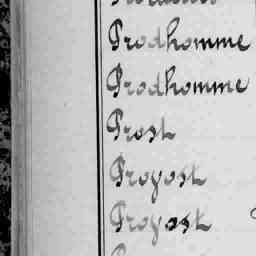 Prodhomme
Prodhomme
Prost
Proyost
Proyost